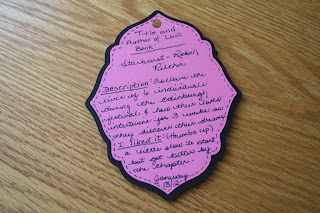 Title and
Author of Last
Book:
Starburst - Robin
Pilcher
Description: Follows the
lives of 6 individuals
during the Edinburgh
festival & how their lives
intertwine for 3 weeks as
they discover their dreams
I liked it: (thumbs up)
a little slow to start
but got better by
the chapter.
January
13/12